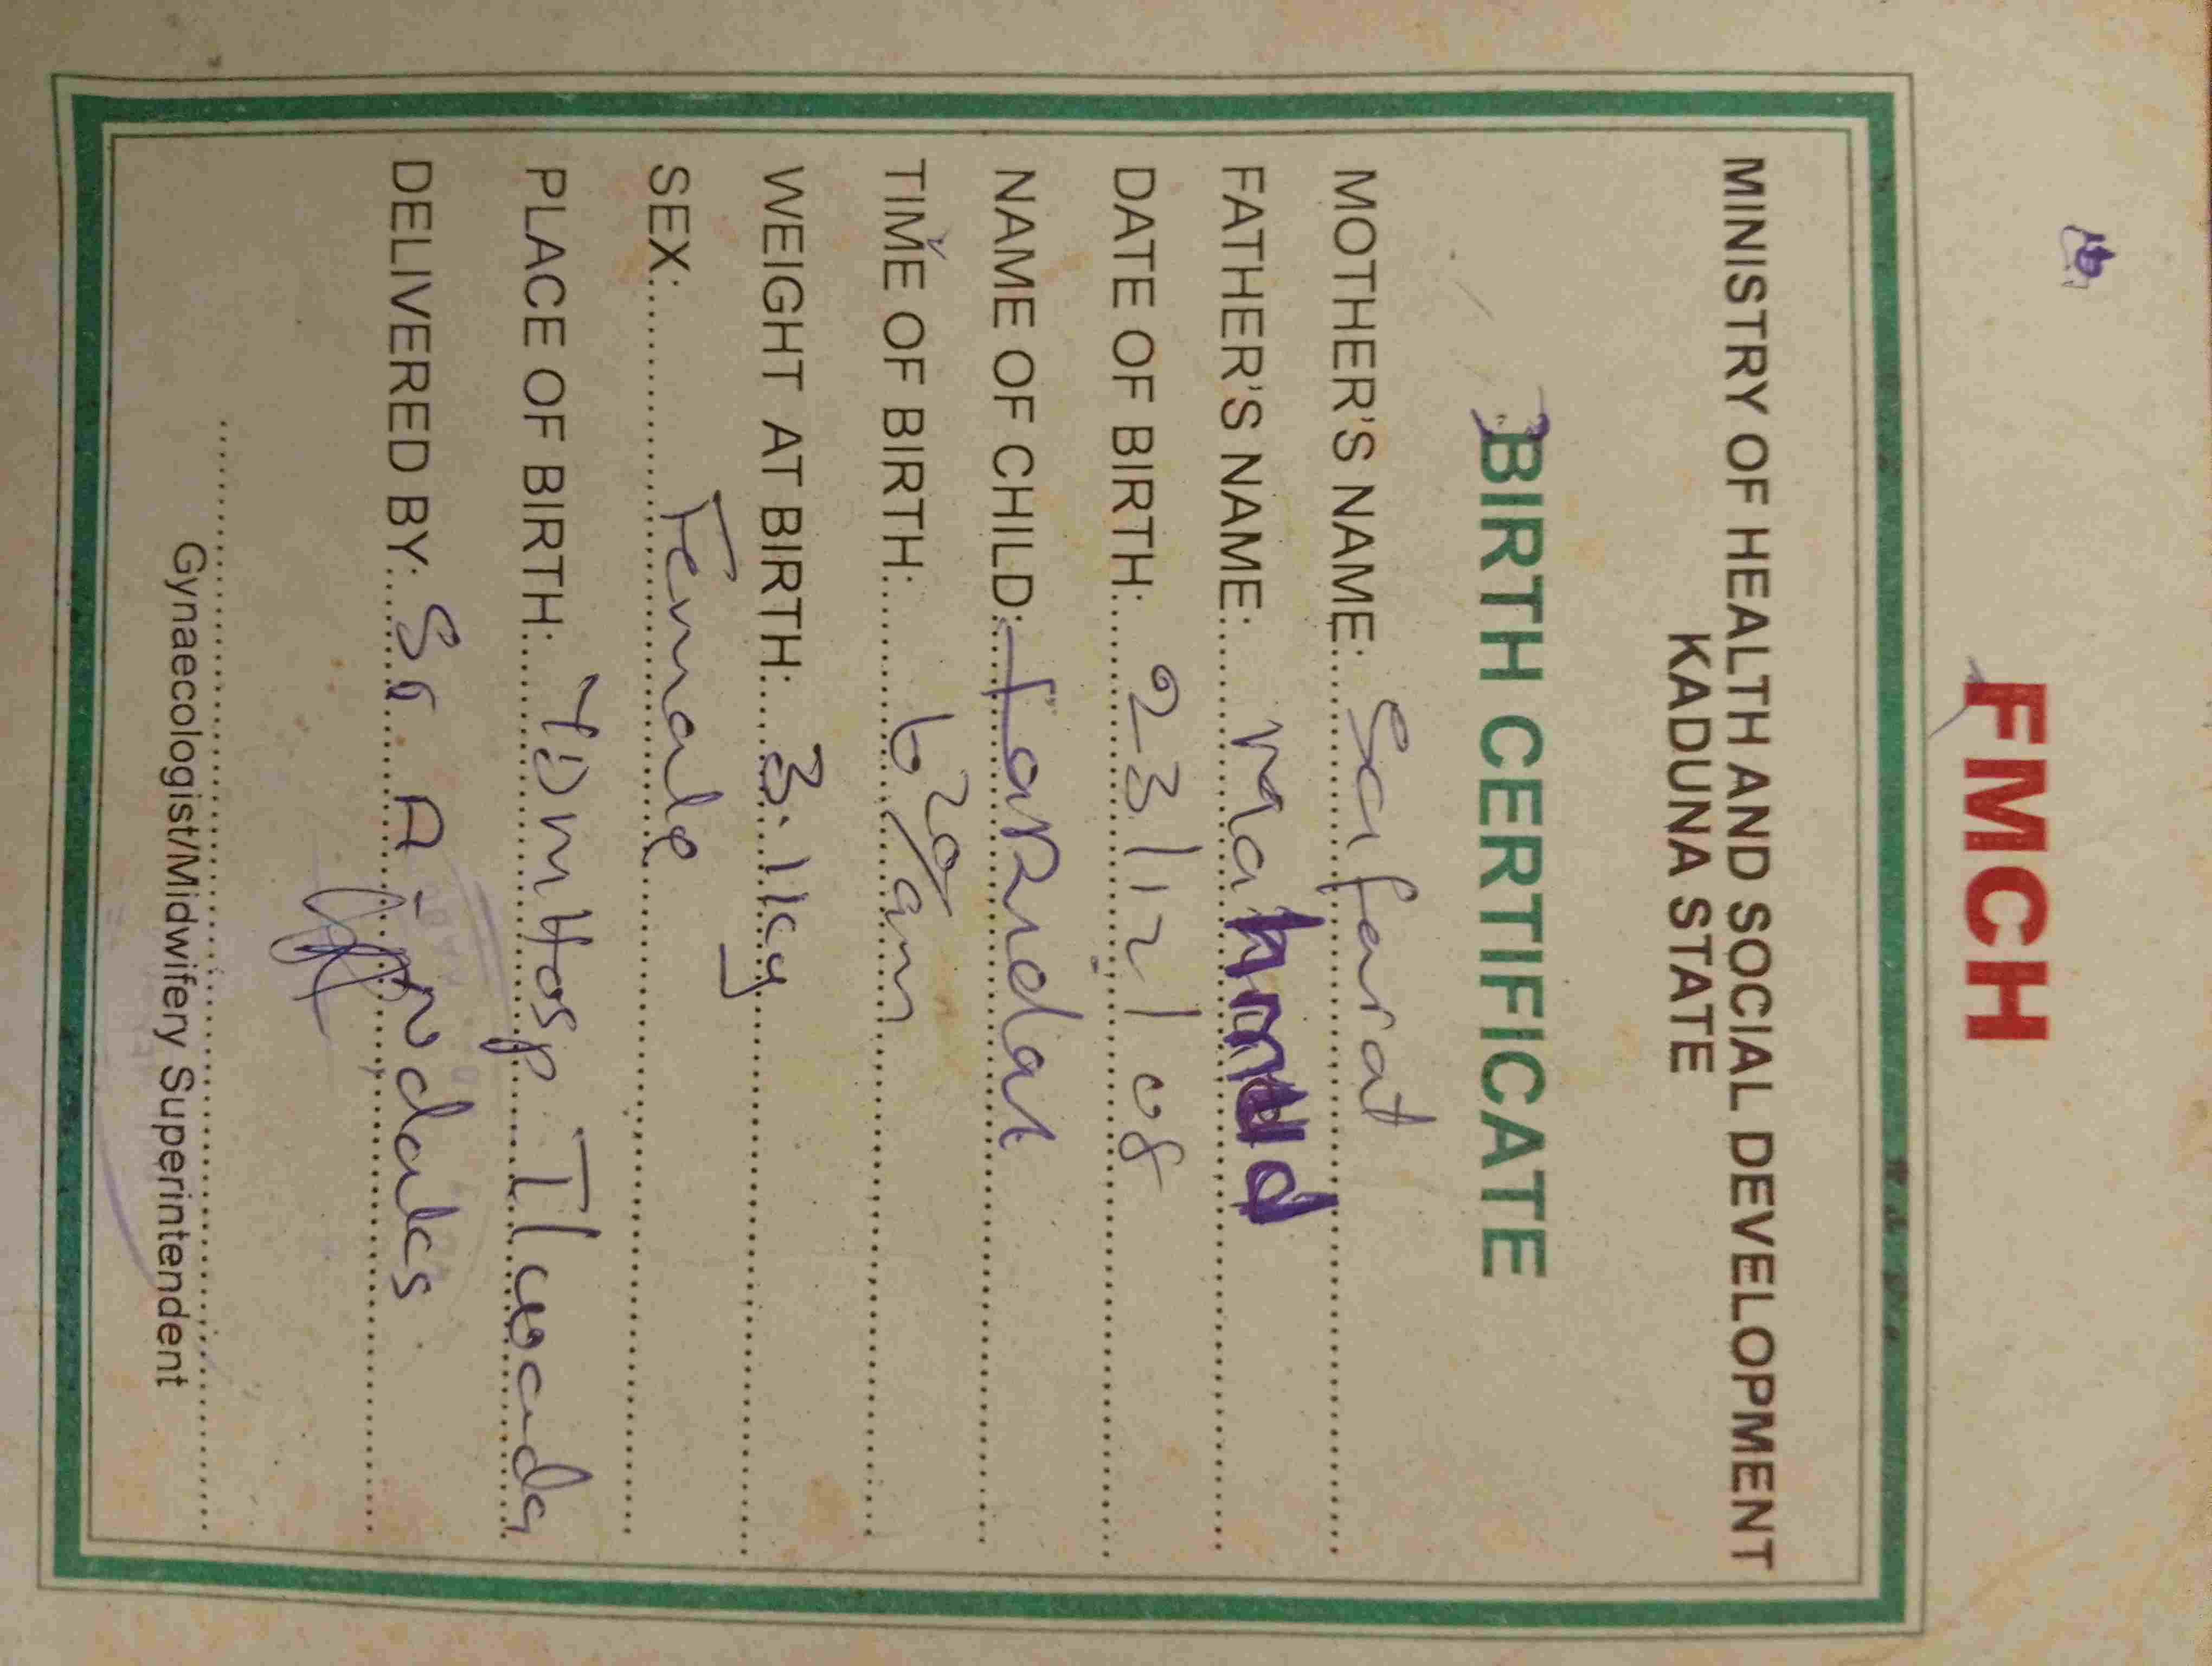 FMCH
MINISTRY OF HEALTH AND SOCIAL DEVELOPMENT
KADUNA STATE
BIRTH CERTIFICATE
MOTHER'S NAME: Safarat
FATHER'S NAME: Mahmud
DATE OF BIRTH: 23/12/08
NAME OF CHILD:
TIME OF BIRTH: 6 20/am
WEIGHT AT BIRTH: 3.1kg
SEX: Female
PLACE OF BIRTH: Hosp T/wada
DELIVERED BY: Sr. A
Gynaecologist/Midwifery Superintendent